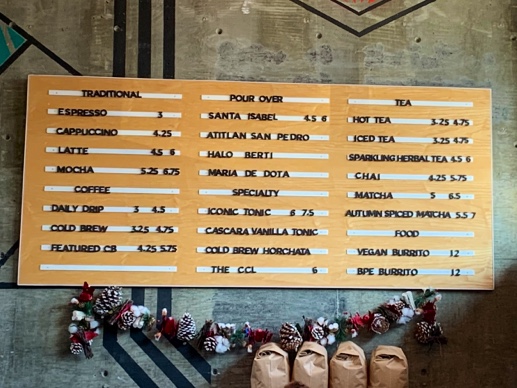 TRADITIONAL
ESPRESSO 3
CAPPUCCINO 4.25
LATTE 4.5 6
MOCHA 5.25 6.75
COFFEE
DAILY DRIP 3 4.5
COLD BREW 3.25 4.75
FEATURED CB 4.25 5.75
POUR OVER
SANTA ISABEL 4.5 6
ATITLAN SAN PEDRO
HALO BERTI
MARIA DE DOTA
SPECIALTY
ICONIC TONIC 6 7.5
CASCARA VANILLA TONIC
COLD BREW HORCHATA
THE CCL 6
TEA
HOT TEA 3.25 4.75
ICED TEA 3.25 4.75
SPARKLING HERBAL TEA 4.5 6
CHAI 4.25 5.75
MATCHA 5 6.5
AUTUMN SPICED MATCHA 5.5 7
FOOD
VEGAN BURRITO 12
BPE BURRITO 12